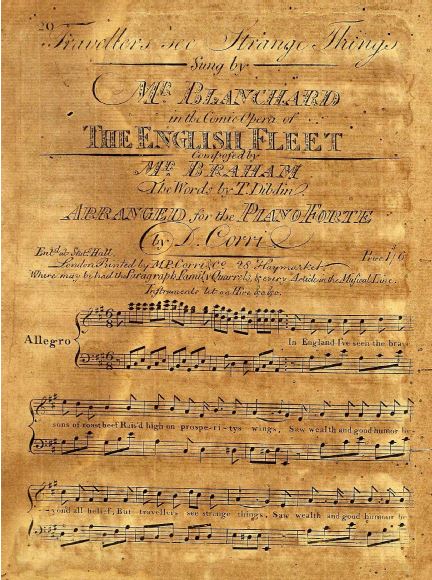 20
Travellers see Strange Things
Sung by
Mr. BLANCHARD
in the Comic Opera of
THE ENGLISH FLEET
Composed by
Mr. BRAHAM
The Words by T. Dibdin
ARRANGED for the PIANO FORTE
by D. Corri
Entd. at Stats. Hall Price 1s/6
London Printed by M.P. Corri & Co. 28 Haymarket
Where may be had the Paragraph, Family Quarrels, & every Article in the Musical Line.
Instruments let on Hire &c &c.
Allegro
In England I've seen the brave
sons of roast beef Rais'd high on prospe-ri-tys wings, Saw wealth and good humor be-
-yond all belief, But travellers see strange things, Saw wealth and good humour be-